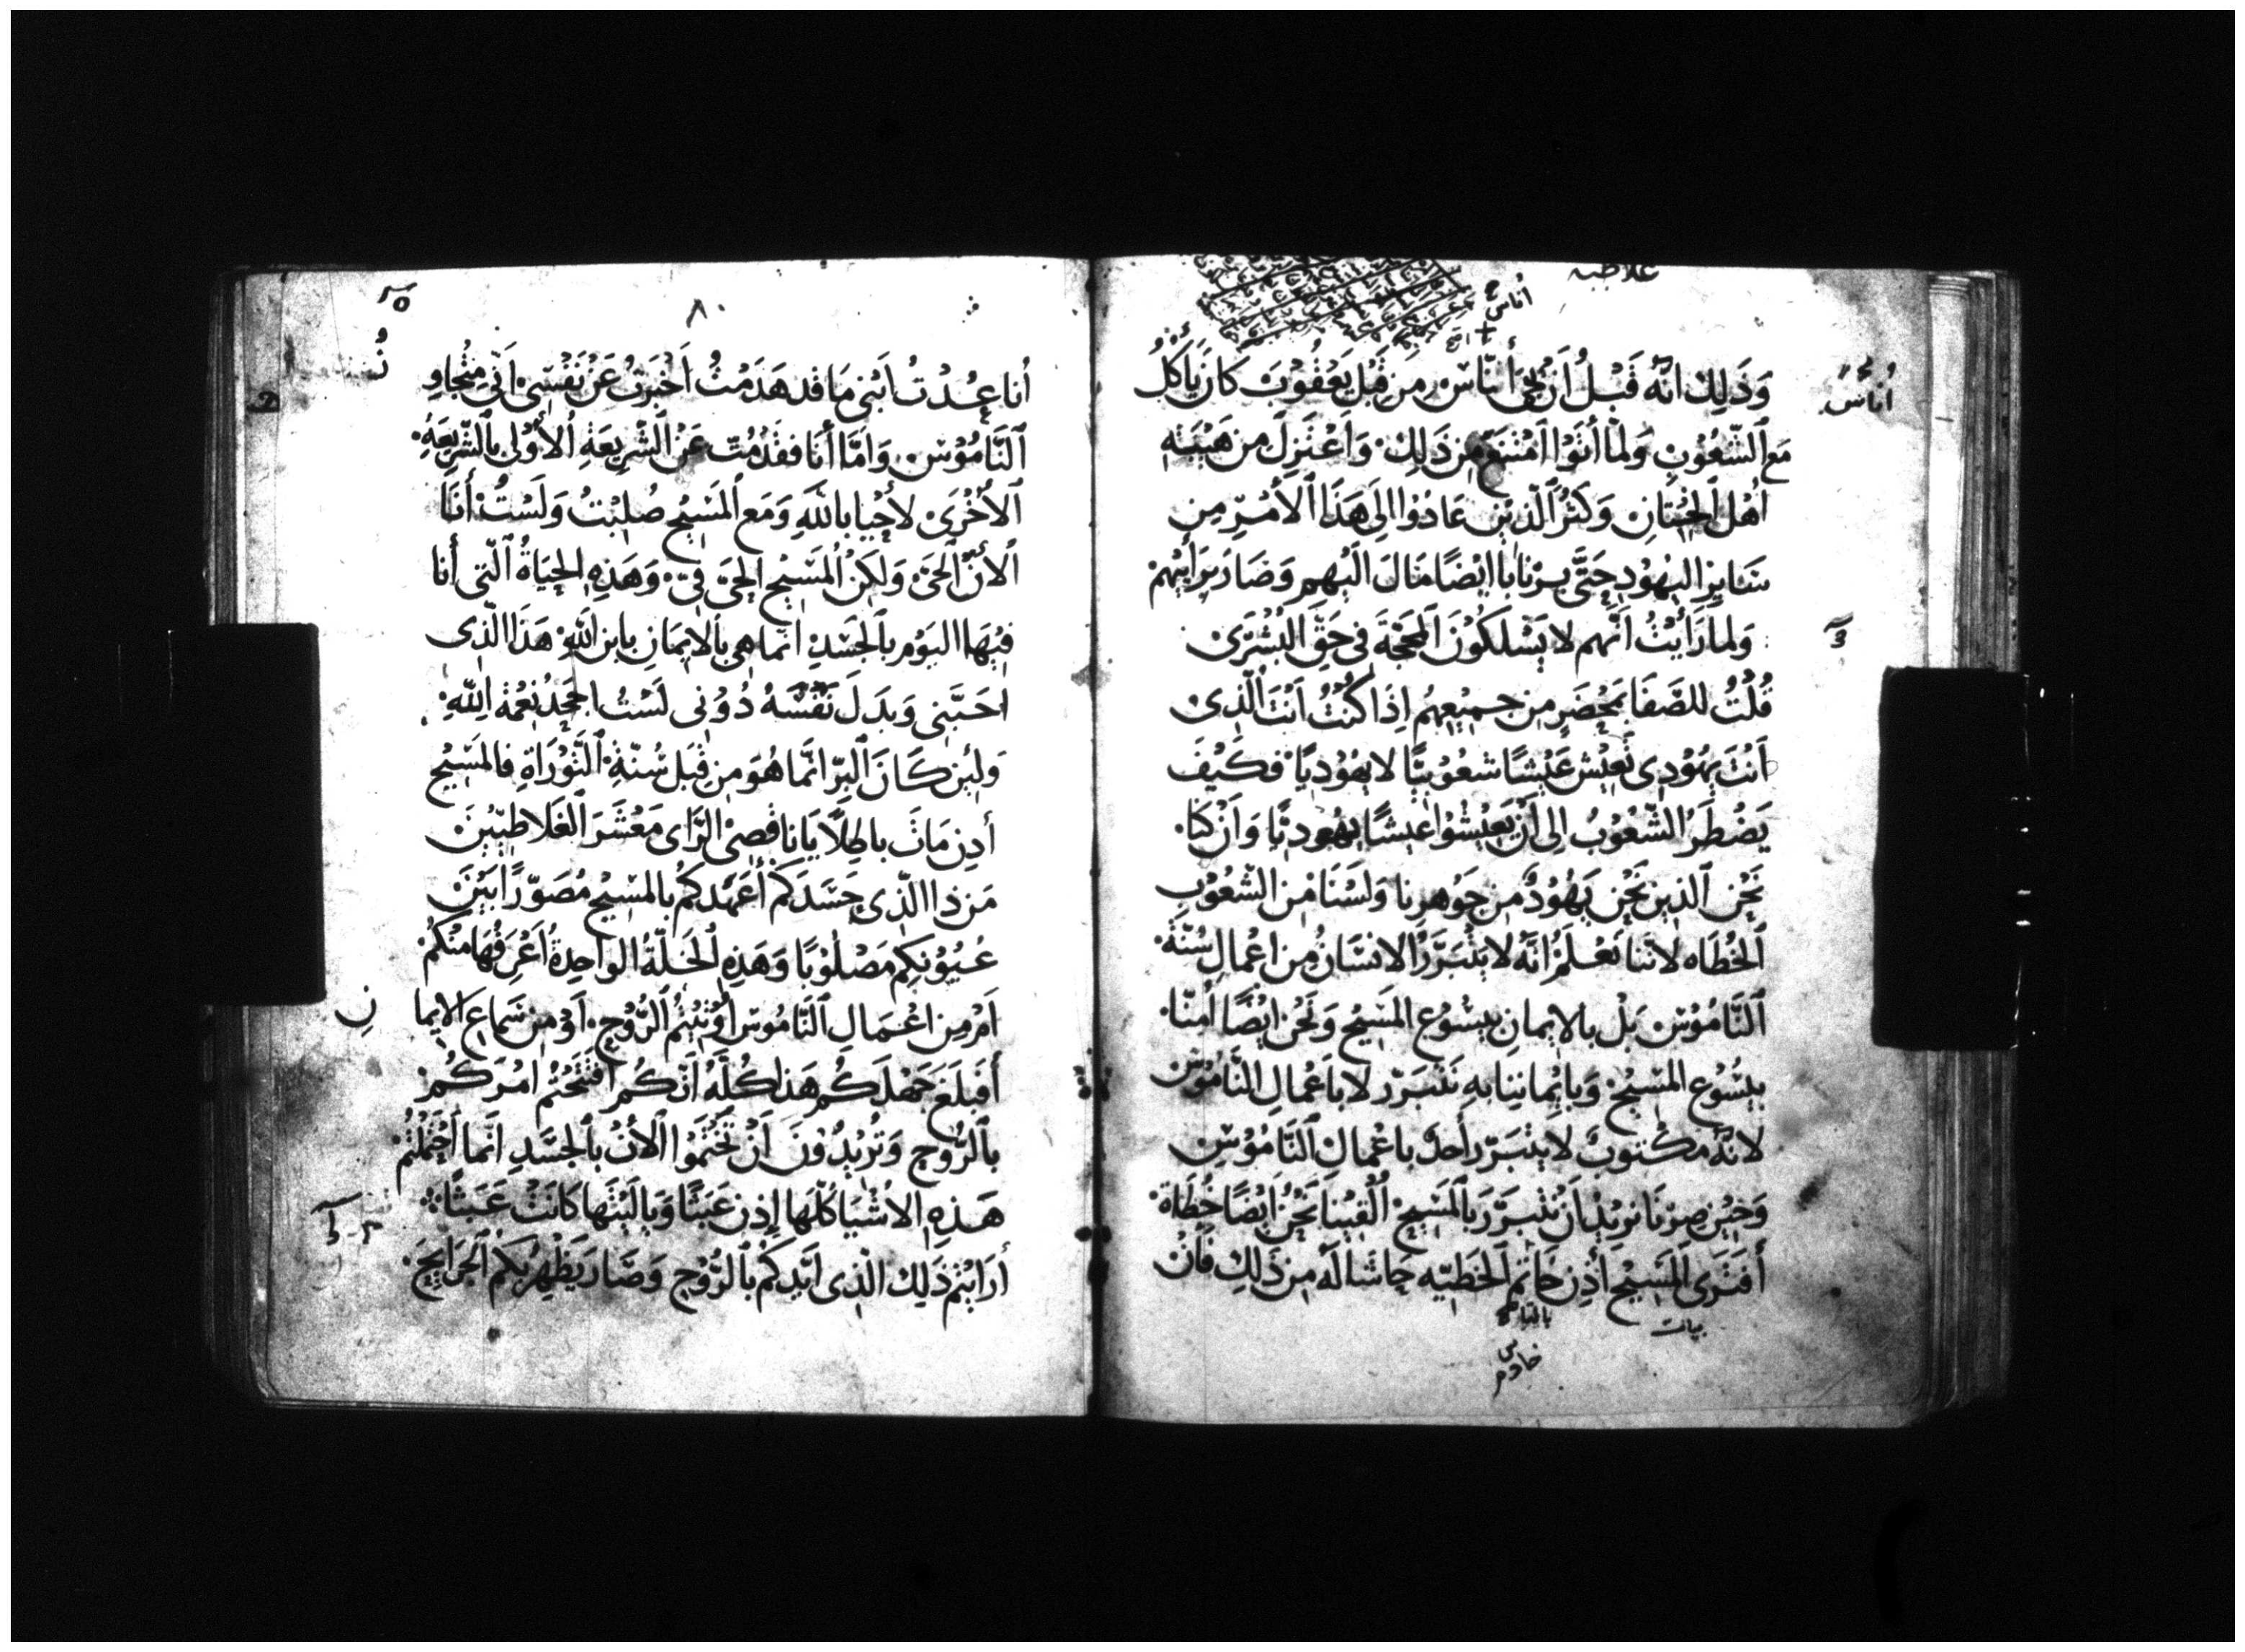 غلاطيه
أناس
أناسٌ
وَذَلِكَ انهُ قَبْلُ أَن يَجِىَ أنَاسٌ مِن قِبَل يَعقُوْبَ كَانَ يَأكُلُ
مَع ٱلشّعُوْبِ وَلمّا أتَوْا امْتَنعَ مِن ذَلِكَ وَاعْتَزلَ مِن هَيْبَتهِ
أهْل ٱلخِتَانِ وَكَثُرَ ٱلّذيْن عَادُوْا الَى هَذَا ٱلأمْرِ مِن
سَايِرِ اليهُوْدِ حَتَّى بِرْنَابَا ايْضًا مَالَ الَيْهم وَصَارَ بِرَأيِهمْ
وَلما رَأيْتُ أنّهم لا يَسْلكُوْنَ ٱلمحَجّةَ فى حَقِّ البُشْرَىْ
قُلتُ للصَّفَا بمحْضَرٍ مِن جميْعِهِمُ اِذَا كُنتُ أنتَ الّذِىْ
أنتَ يهُوْدِى تَعِيْش عَيْشًا شعُوْبيًّا لا يهُوْدِيًا فكَيْفَ
يَضْطَرُ الشّعُوْبُ الى أنْ يَعِيْشُوْا عيشًا يهُوديًّا وَأنْ كنّا
نحْن ٱلذين نحْن يَهُوْدٌ مِن جَوْهرِنا وَلسْنَا مْن الشّعُوْبِ
ٱلخُطاه لانّنا نَعْلَمُ انّهُ لا يَتبرّرُ الانسَانُ مِن اعْمالِ سُنّةِ
ٱلنَّامُوْسِ بَلْ بالايمانِ بيسُوْع المَسِيْح وَنحْن ايْضًا أمنّا
بيسُوع المَسِيْح وَبايْماننِا بهِ نَتبَرّر لا بأعْمالِ النَّامُوْسْ
لانهُ مكْتوبٌ لا يتَبرّر أحدٌ باعْمالِ ٱلنَّامُوْسِ
وَحِيْن صِرْنَا نرِيْدُ أنْ نتْبرَّرَ بٱلمَسِيْحِ ٱلْفِيْنا نحْنُ أيْضًا خُطَاة
أفتَرَى المَسِيْحَ اذِن خادِم ٱلخَطِيّه حاشا لهُ مِن ذلِك فَانْ
خادم
٨٠
أنا عُدْتُ ابَنى مَا قد هَدَمْتُ أخْبَرتُ عَنْ نَفْسِى انّى متُجاوِ
ٱلنَّامُوْسْ وَامّا أنا فقَدْ مُتّ عَنْ ٱلشّرِيعَةِ ٱلأوْلى بٱلشّرِيعَةِ
ٱلأخْرَىْ لأحْيا باللهِ وَمَع ٱلمَسِيْح صُلِبْتُ وَلَسْتُ أنَا
ٱلأنَ ٱلحَىّ وَلكِنْ ٱلمَسِيْح الحَىّ فىّ وَهَذِهِ الحيَاةُ ٱلّتى أنا
فيْهَا اليَوْم بٱلجَسَدِ انّما هى بالايْمَانِ بابن اللهِ هَذَا الّذِى
احَبَّنى وَبدَلَ نَفْسَهُ دُوْنى لَسْتُ اجحَدُ نِعْمةَ اللهِ
وَلئِن كَانَ ٱلبِرّ انّما هُوَ مِن قِبَل سُنّةِ ٱلتَّوْرَاةِ فالمَسِيْح
أذِن مَاتَ باطِلاً يَا ناقصِىْ الرَّاى مَعْشَرَ ٱلغَلاطِيِّيْنَ
مَن ذا الّذِى حَسَدَكمْ أعَهْدكُم بالمسِيْح مُصَوّرًا بَيْنَ
عُيُوْنكِم مَصْلُوْبًا وَهَذِهِ ٱلخَلّةُ الوَاحِدةُ أعْرفُهَا مِنْكُمْ
امْ مِن اعْمَالِ ٱلنَّامُوْس أوْتِيْتُم ٱلرُّوْح أوْ مِن سَماعِ الايما
نِ
أفبَلغَ جَهْلكُم هَذا كُلّهُ أنّكُم افتَتحْتُم امْرَكُمْ
بٱلرُّوحِ وَتُرِيْدُوْنَ أنْ تخْتمُوْا ٱلأنْ بٱلجَسَدِ انّما احْتَمَلْتُمْ
هَذِهِ الاشْيَا كُلّهَا اِذن عَبَثًا وَيا لَيْتهَا كانَتْ عَبَثًا
أرَايْتُم ذَلِك الّذِى ايّدكمْ بٱلرُّوْح وَصَارَ يَظْهِر بكمُ ٱلجَرَايِحَ